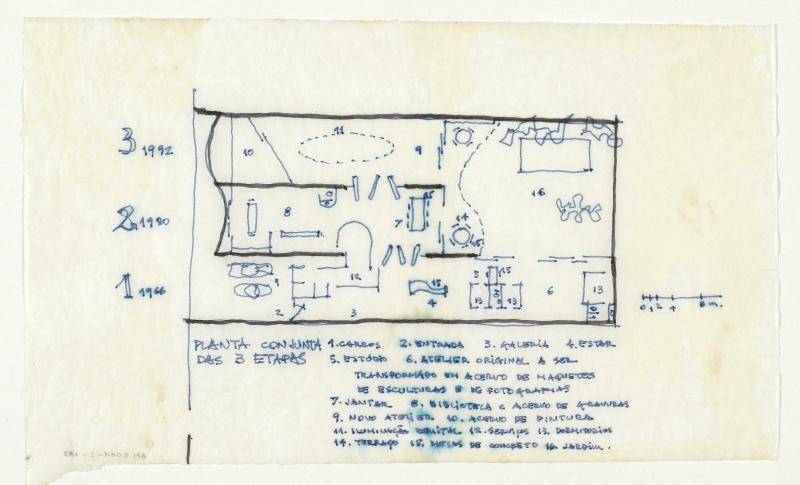 3 1992
2 1980
1 1966
11
10
9
16
8
7
15
14
15
1
12
15
4
2
3
5
15
13
13
6
13
0 1 2 4 8 m.
PLANTA CONJUNTA
DAS 3 ETAPAS
1. CARROS 2. ENTRADA 3. GALERIA 4. ESTAR
5. ESTÚDIO 6. ATELIER ORIGINAL A SER
TRANSFORMADO EM ACERVO DE MAQUETES
DE ESCULTURAS E DE FOTOGRAFIAS
7. JANTAR 8. BIBLIOTECA E ACERVO DE GRAVURAS
9. NOVO ATELIER 10. ACERVO DE PINTURA
11. ILUMINAÇÃO ZENITAL 12. SERVIÇOS 13. DORMITORIOS
14. TERRAÇO 15. MESAS DE CONCRETO 16. JARDIM.